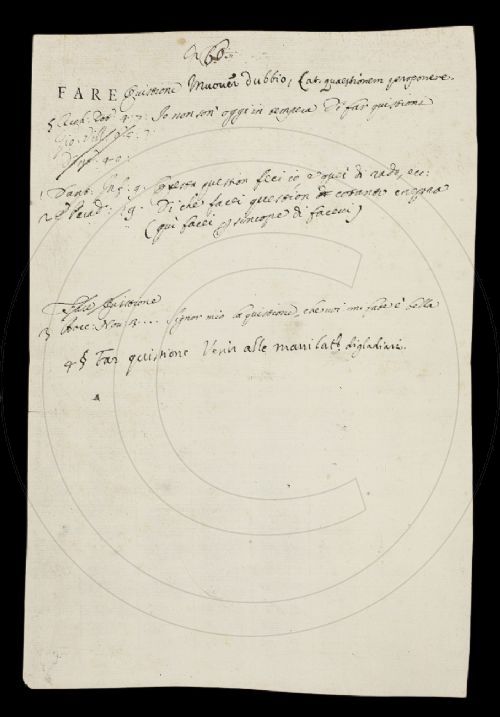 60
FARE Quistione Muover dubbio, Lat. quaestionem proponere.
4. 7. Io non son oggi in tempera di far quistioni
Inf. 9. Questa question feci io e quei di rado, ecc:
2 Parad: 19. Di che facei question cotanto crebra
(qui facei è sincope di facevi)
Fare Quistione
3 Bocc: Nov: Signor mio la quistione, che voi mi fate è bella
4 § Far quistione Venir alle mani lat: digladiari.